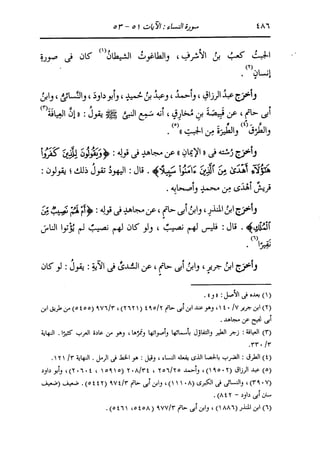 ٤٨٦ سورة النساء : الآيات ٥١ - ٥٣
الجبتُ كعبُ بنُ الأشرفِ ، والطاغوتُ الشيطانُ(١) كان فى صورةِ
إنسانٍ(٢) .
وأخرَج عبدُ الرزاقِ ، وأحمدُ ، وعبدُ بنُ حُميدٍ ، وأبو داودَ ، والنسائىُّ ، وابنُ
أبى حاتمٍ ، عن قَبيصةَ بنِ مُخارقٍ ، أنه سمِع النبىَّ ﷺ يقولُ : « إنَّ العِيافةَ(٣)
والطَّرْقَ(٤) والطِّيَرةَ من الجبتِ »(٥) .
وأخرَج رُسْته فى « الإيمانِ » عن مجاهدٍ فى قولِه : ﴿ وَيَقُولُونَ لِلَّذِينَ كَفَرُوا
هَٰؤُلَاءِ أَهْدَىٰ مِنَ الَّذِينَ ءَامَنُوا سَبِيلًا ﴾ . قال : اليهودُ تقولُ ذلك ؛ يقولون :
قريشٌ أهْدَى من محمدٍ وأصحابِه .
وأخرَج ابنُ المنذرِ ، وابنُ أبى حاتمٍ ، عن مجاهدٍ فى قولِه : ﴿ أَمْ لَهُمْ نَصِيبٌ مِّنَ
الْمُلْكِ ﴾ . قال : فليس لهم نصيبٌ ، ولو كان لهم نصيبٌ لم يُؤتوا الناسَ
نقيرًا(٦) .
وأخرَج ابنُ جريرٍ ، وابنُ أبى حاتمٍ ، عن السُّدىِّ فى الآيةِ : يقولُ : لو كان
(١) بعده فى الأصل : « و » .
(٢) ابن جرير ٧/ ١٤٠، وهو عند ابن أبى حاتم ٤٩٥/٢ (٢٦٢١)، ٩٧٦/٣ (٥٤٥٥) من طريق ابن
أبى نجيح عن مجاهد .
(٣) العيافة : زجر الطير والتفاؤل بأسمائها وأصواتها وممرها ، وهو من عادة العرب كثيرًا . النهاية
٣/ ٣٣٠.
(٤) الطرق : الضرب بالحصا الذى يفعله النساء ، وقيل : هو الخط فى الرمل . النهاية ٣/ ١٢١.
(٥) عبد الرزاق (١٩٥٠٢)، وأحمد ٢٥٦/٢٥ (١٥٩١٥) ٢٠٨/٣٤ (٢٠٦٠٤)، وأبو داود
(٣٩٠٧)، والنسائى فى الكبرى (١١١٠٨)، وابن أبى حاتم ٩٧٤/٣ (٥٤٤٢) . ضعيف (ضعيف
سنن أبى داود - ٨٤٢) .
(٦) ابن المنذر (١٨٨٦)، وابن أبى حاتم ٩٧٧/٣ (٥٤٥٨، ٥٤٦١) .